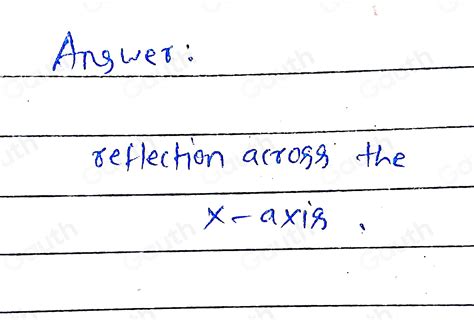 Answer:
reflection across the
x-axis.